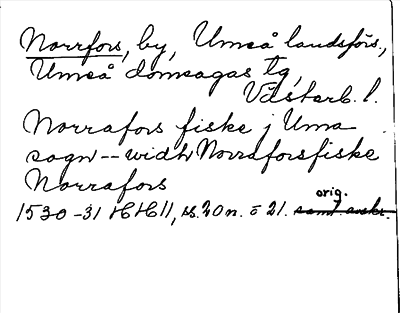 Norrfors, by, Umeå landsförs.,
Umeå domsagas tg,
Västerb. l.
Norrafors fiske j Uma
sogn -- widh Norraforsfiske
Norrafors
orig.
1530-31 HH 11, s. 20 n. ö 21. samt avskr.